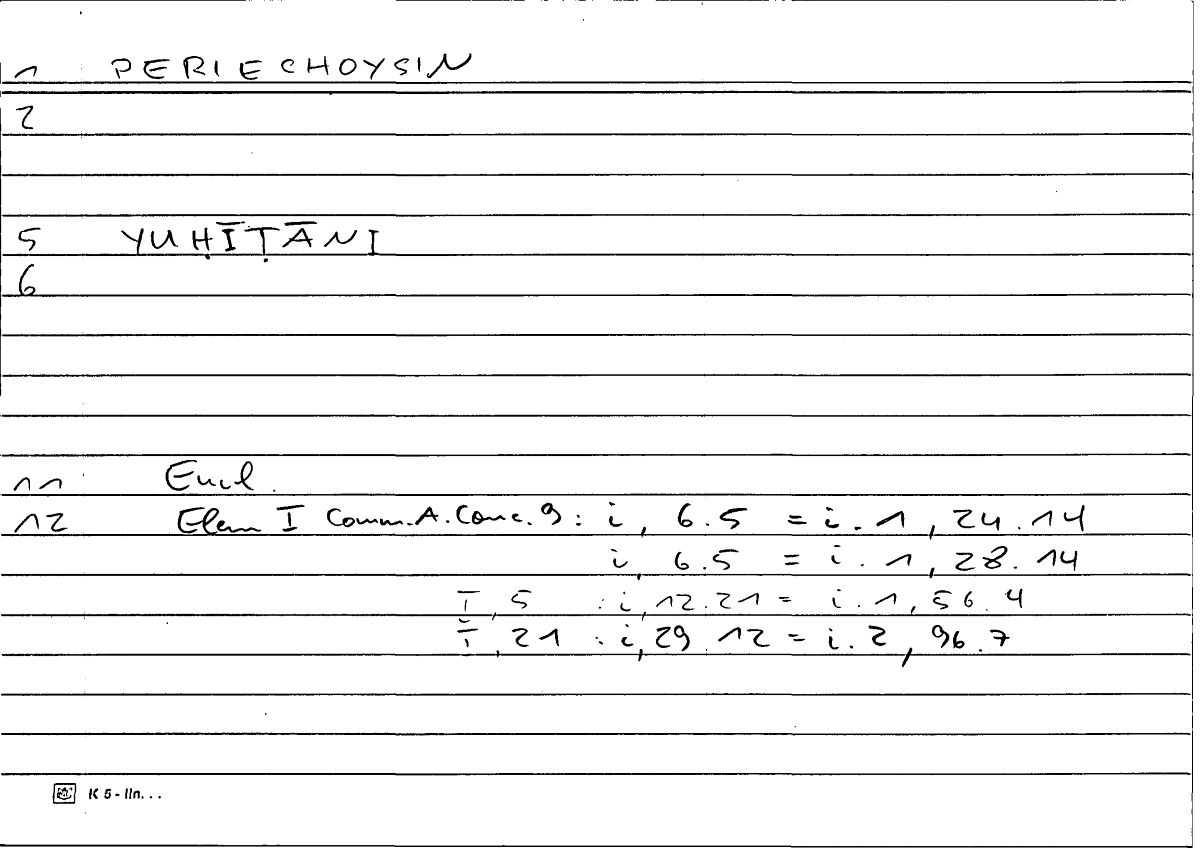 1 PERIECHOYSIN
2
5 YUḤĪṬĀNI
6
11 Eucl.
12 Elem I Comm.A.Conc. 9 : i, 6.5 = i.1, 24.14
i, 6.5 = i.1, 28.14
I, 5 : i, 12.21 = i.1, 56.4
I, 21 : i, 29.12 = i.2, 96.7
K 5 - lin...